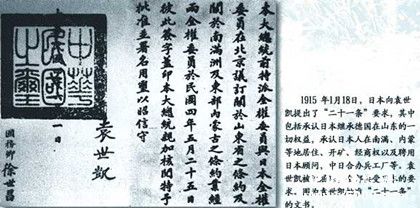 本大總統前特派全權委員與日本全權
委員在北京議訂關於山東省之條約及
關於南滿洲及東部內蒙古之條約業經
兩全權委員於民國四年五月二十五日
彼此簽字蓋印本大總統親加核閱特予
批准並署名用璽以昭信守
袁世凱
一日
國務卿 徐世昌
中華民國之璽
1915 年1月18日，日本向袁世
凯提出了“二十一条”要求，其中
包括承认日本继承德国在山东的一
切权益，承认日本人在南满、内蒙
等地居住、开矿、经商权以及聘用
日本顾问、中日合办兵工厂等。袁
世凯被 的要
求。图为袁世凯 “二十一条”
的文书。